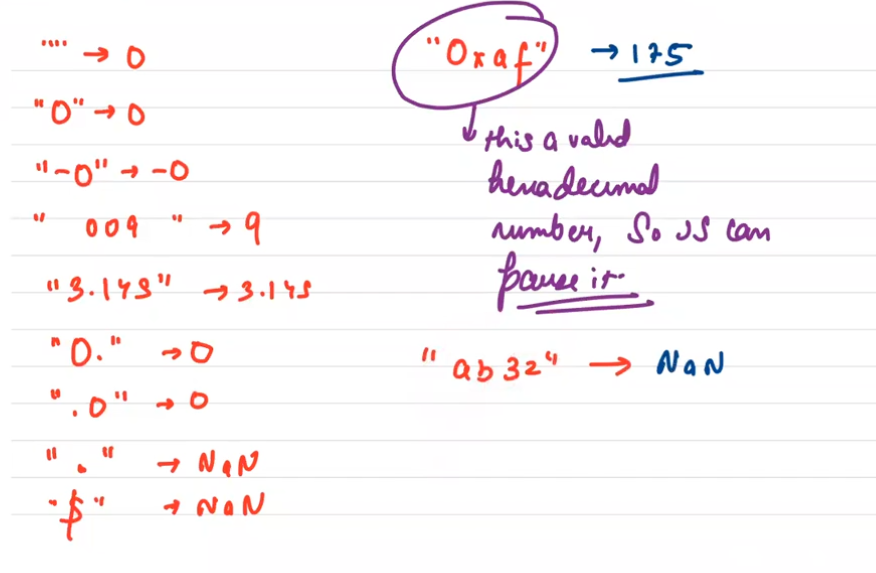 "" → 0
"0" → 0
"-0" → -0
" 009 " → 9
"3.145" → 3.145
"0." → 0
".0" → 0
"." → NaN
"$" → NaN
"0xaf" → 175
this a valid
hexadecimal
number, So JS can
parse it.
"ab32" → NaN